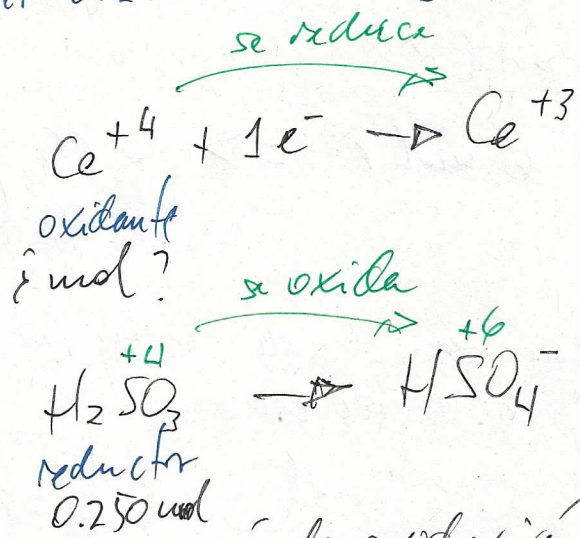 se reduce
Ce⁺⁴ + 1e⁻ → Ce⁺³
oxidante
¿mol?
se oxida
+4 +6
H₂SO₃ → HSO₄⁻
reductor
0.250 mol